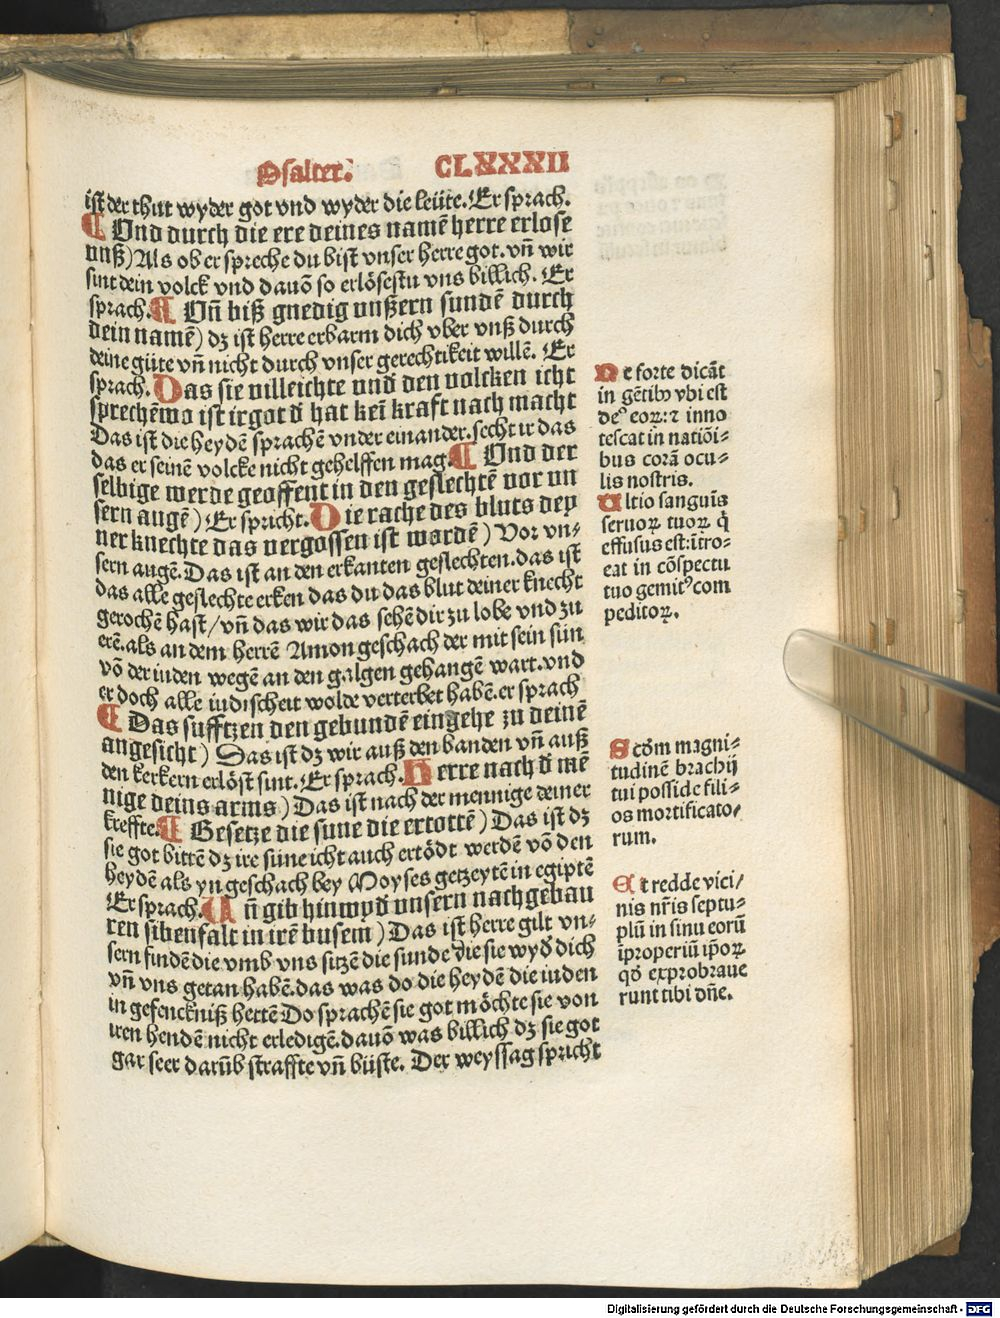 Psalter. CLXXXII
ist der thut wyder got vnd wyder die leüte. Er sprach.
¶ Vnd durch die ere deines namē herre erlose
vnß) Als ob er spreche du bist vnser herre got. vn̄ wir
sint dein volck vnd dauō so erlösestu vns billich. Er
sprach. ¶ Vn̄ biß gnedig vnßern sundē durch
dein namē) dz ist herre erbarm dich vber vnß durch
deine güte vn̄ nicht durch vnser gerechtikeit willē. Er
sprach. Das sie villeichte vnd den volcken icht
sprechē wo ist ir got d̄ hat kei kraft nach macht
Das ist die heydē sprachē vnder einander. secht ir das
das er seinē volcke nicht gehelffen mag. ¶ Vnd der
selbige werde geoffent in den geslechtē vor vn
sern augē) Er spricht. Die rache des bluts dey
ner knechte das vergossen ist wordē) Vor vn⸗
sern augē. Das ist an den erkanten geslechten. das ist
das alle geslechte erken das du das blut deiner knecht
gerochē hast/ vn̄ das wir das sehē dir zu lobe vnd zu
erē. als an dem herrē Amon geschach der mit sein sün
vō der iuden wegē an den galgen gehangē wart. vnd
er doch alle iudischeit wolde verterbet habē. er sprach
¶ Das sufftzen den gebundē eingehe zu deinē
angesicht) Das ist dz wir auß den banden vn̄ auß
den kerkern erlöst sint. Er sprach. Herre nach d̄ mē
nige deins arms) Das ist nach der mennige deiner
kreffte. ¶ Besetze die sune die ertottē) Das ist dz
sie got bittē dz ire süne icht auch ertödt werdē vō den
heydē als yn geschach bey Moyses getzeytē in egiptē
Er sprach. Vn̄ gib hinwyd̄ vnsern nachgebau
ren sibenfalt in irē busem) Das ist herre gilt vn⸗
sern findē die vmb vns sitzē die sunde die sie wyd̄ dich
vn̄ vns getan habē. das was do die heydē die iuden
in gefenckniß hettē Do sprachē sie got möchte sie von
iren hendē nicht erledigē. dauō was billich dz sie got
gar seer darūb straffte vn̄ büste. Der weyssag spricht
Ne forte dicāt
in gētibꝰ vbi est
deꝰ eoꝝ: ⁊ inno
tescat in natiōi⸗
bus corā ocu⸗
lis nostris.
Vltio sanguīs
seruoꝝ tuoꝝ q̄
effusus est: ītro⸗
eat in cōspectu
tuo gemitꝰ com
peditoꝝ.
Scd̄m magni⸗
tudinē brachij
tui posside fili⸗
os mortificato⸗
rum.
Et redde vici/
nis nr̄is septu⸗
plū in sinu eorū
īproperiū ip̄oꝝ
qd̄ exprobraue
runt tibi dn̄e.
Digitalisierung gefördert durch die Deutsche Forschungsgemeinschaft - DFG